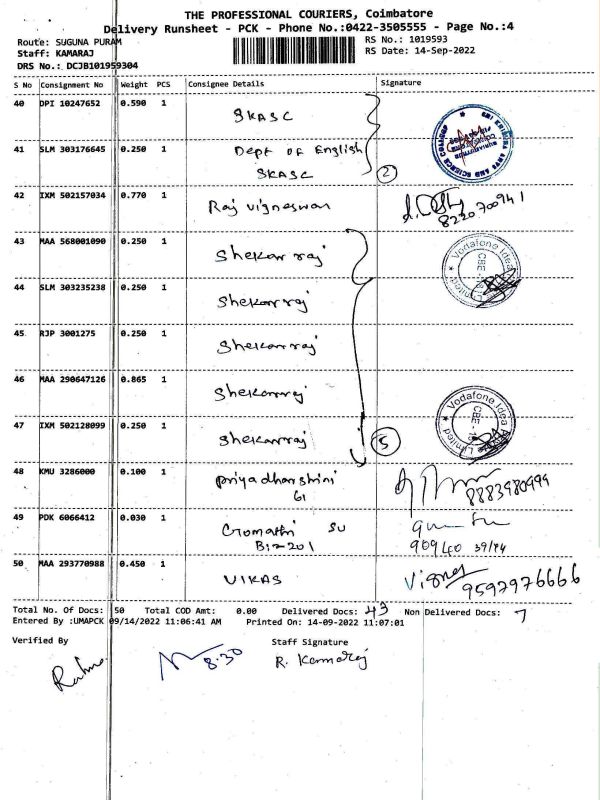 THE PROFESSIONAL COURIERS, Coimbatore
Delivery Runsheet - PCK - Phone No.:0422-3505555 - Page No.:4
Route: SUGUNA PURAM
RS No.: 1019593
Staff: KAMARAJ
RS Date: 14-Sep-2022
DRS No.: DCJB101959304
S No Consignment No Weight PCS Consignee Details Signature
40 DPI 10247652 0.590 1 SKASC
41 SLM 303176645 0.250 1 Dept of English
SKASC
2
42 IXM 502157034 0.770 1 Raj Vigneswar
8220700941
43 MAA 568001090 0.250 1 Shekar raj
Vodafone Idea
Limited
CBE
44 SLM 303235238 0.250 1 Shekar raj
45 RJP 3001275 0.250 1 Shekar raj
46 MAA 290647126 0.865 1 Shekar raj
47 IXM 502128099 0.250 1 Shekar raj
5
Vodafone Idea
Limited
CBE
48 KMU 3286000 0.100 1 Priyadharshini
61
8883980999
49 PDK 6066412 0.030 1 Gomathi SU
50 MAA 293770988 0.450 1 VIKAS
9597976666
Total No. Of Docs: 50 Total COD Amt: 0.00 Delivered Docs: 43 Non Delivered Docs: 7
Entered By :UMAPCK 09/14/2022 11:06:41 AM Printed On: 14-09-2022 11:07:01
Verified By Staff Signature
8.30
R. Kamaraj